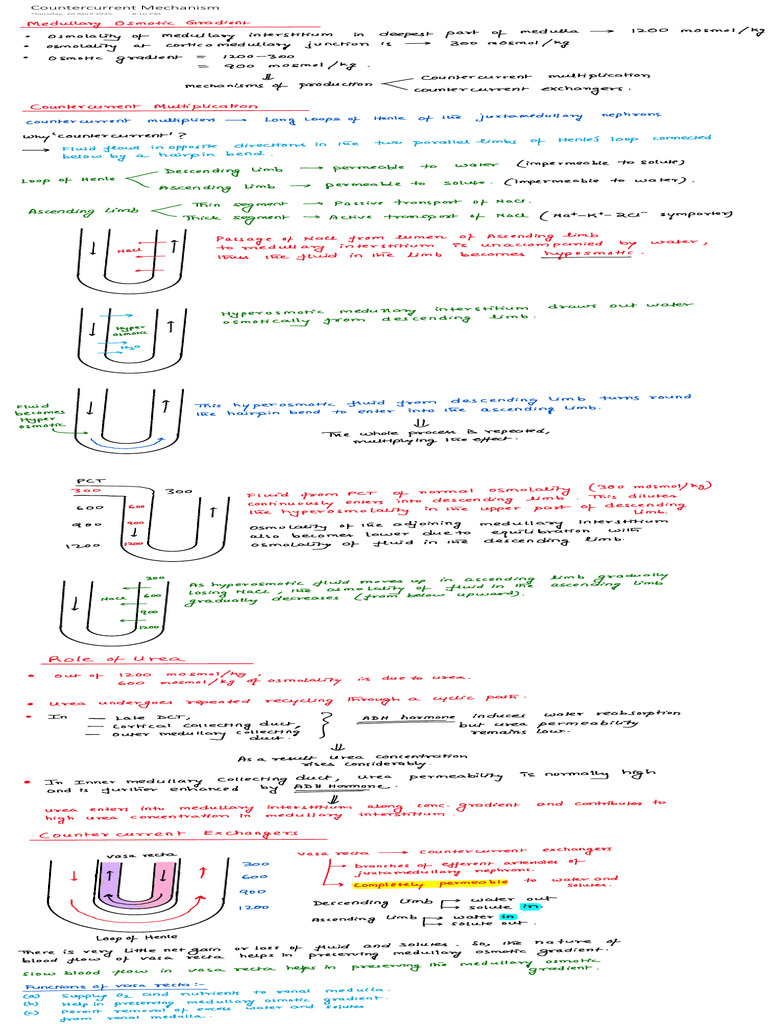 Countercurrent Mechanism
Thursday, 10 April 2025 8:10 PM
Medullary Osmotic Gradient
• Osmolality of medullary interstitium in deepest part of medulla → 1200 mosmol/kg
• Osmolality at corticomedullary junction is → 300 mosmol/kg
• Osmotic gradient = 1200-300
= 900 mosmol/kg.
⇓
mechanisms of production
Countercurrent multiplication
countercurrent exchangers.
Countercurrent Multiplication
countercurrent multipliers → Long Loops of Henle of the juxtamedullary nephrons
Why 'countercurrent'?
→ Fluid flows in opposite directions in the two parallel limbs of Henle's loop connected
below by a hairpin bend.
Loop of Henle
Descending limb → permeable to water (impermeable to solute)
Ascending limb → permeable to solute. (impermeable to water).
Ascending limb
Thin segment → Passive transport of NaCl.
Thick segment → Active transport of NaCl (Na⁺-K⁺-2Cl⁻ symporter)
NaCl
Passage of NaCl from lumen of Ascending limb
to medullary interstitium is unaccompanied by water,
thus the fluid in the limb becomes hyposmotic.
Hyper
osmotic
H₂O
Hyperosmotic medullary interstitium draws out water
osmotically from descending limb.
Fluid
becomes
Hyper
osmotic
This hyperosmotic fluid from descending limb turns round
the hairpin bend to enter into the ascending limb.
⇓
The whole process is repeated,
multiplying the effect.
PCT
300 300
600 600
900 900
1200 1200
Fluid from PCT of normal osmolality (300 mosmol/kg)
continuously enters into descending limb. This dilutes
the hyperosmolality in the upper part of descending
limb.
Osmolality of the adjoining medullary interstitium
also becomes lower due to equilibration with
osmolality of fluid in the descending limb.
300
NaCl 600
900
1200
As hyperosmotic fluid moves up in ascending limb gradually
losing NaCl, the osmolality of fluid in the ascending limb
gradually decreases (from below upward).
Role of Urea
• Out of 1200 mosmol/kg,
600 mosmol/kg of osmolality is due to urea.
• Urea undergoes repeated recycling through a cyclic path.
• In — Late DCT,
— Cortical collecting duct,
— Outer medullary collecting
duct.
ADH hormone induces water reabsorption
but urea permeability
remains low.
⇓
As a result urea concentration
rises considerably.
• In Inner medullary Collecting duct, Urea permeability is normally high
and is further enhanced by ADH Hormone.
⇓
urea enters into medullary interstitium along conc. gradient and contributes to
high urea concentration in medullary interstitium.
Counter current Exchangers
vasa recta
300
600
900
1200
Loop of Henle
vasa recta → countercurrent exchangers
→ branches of efferent arterioles of
juxtamedullary nephrons.
→ Completely permeable to water and
solutes.
Descending Limb → water out
→ solute in.
Ascending Limb → water in
→ solute out.
There is very little net gain or loss of fluid and solutes. So, the nature of
blood flow of vasa recta helps in preserving medullary osmotic gradient.
Slow blood flow in vasa recta helps in preserving the medullary osmotic
gradient.
Functions of vasa recta:-
(a) Supply O₂ and nutrients to renal medulla.
(b) Help in preserving medullary osmotic gradient.
(c) Permit removal of excess water and solutes
from renal medulla.